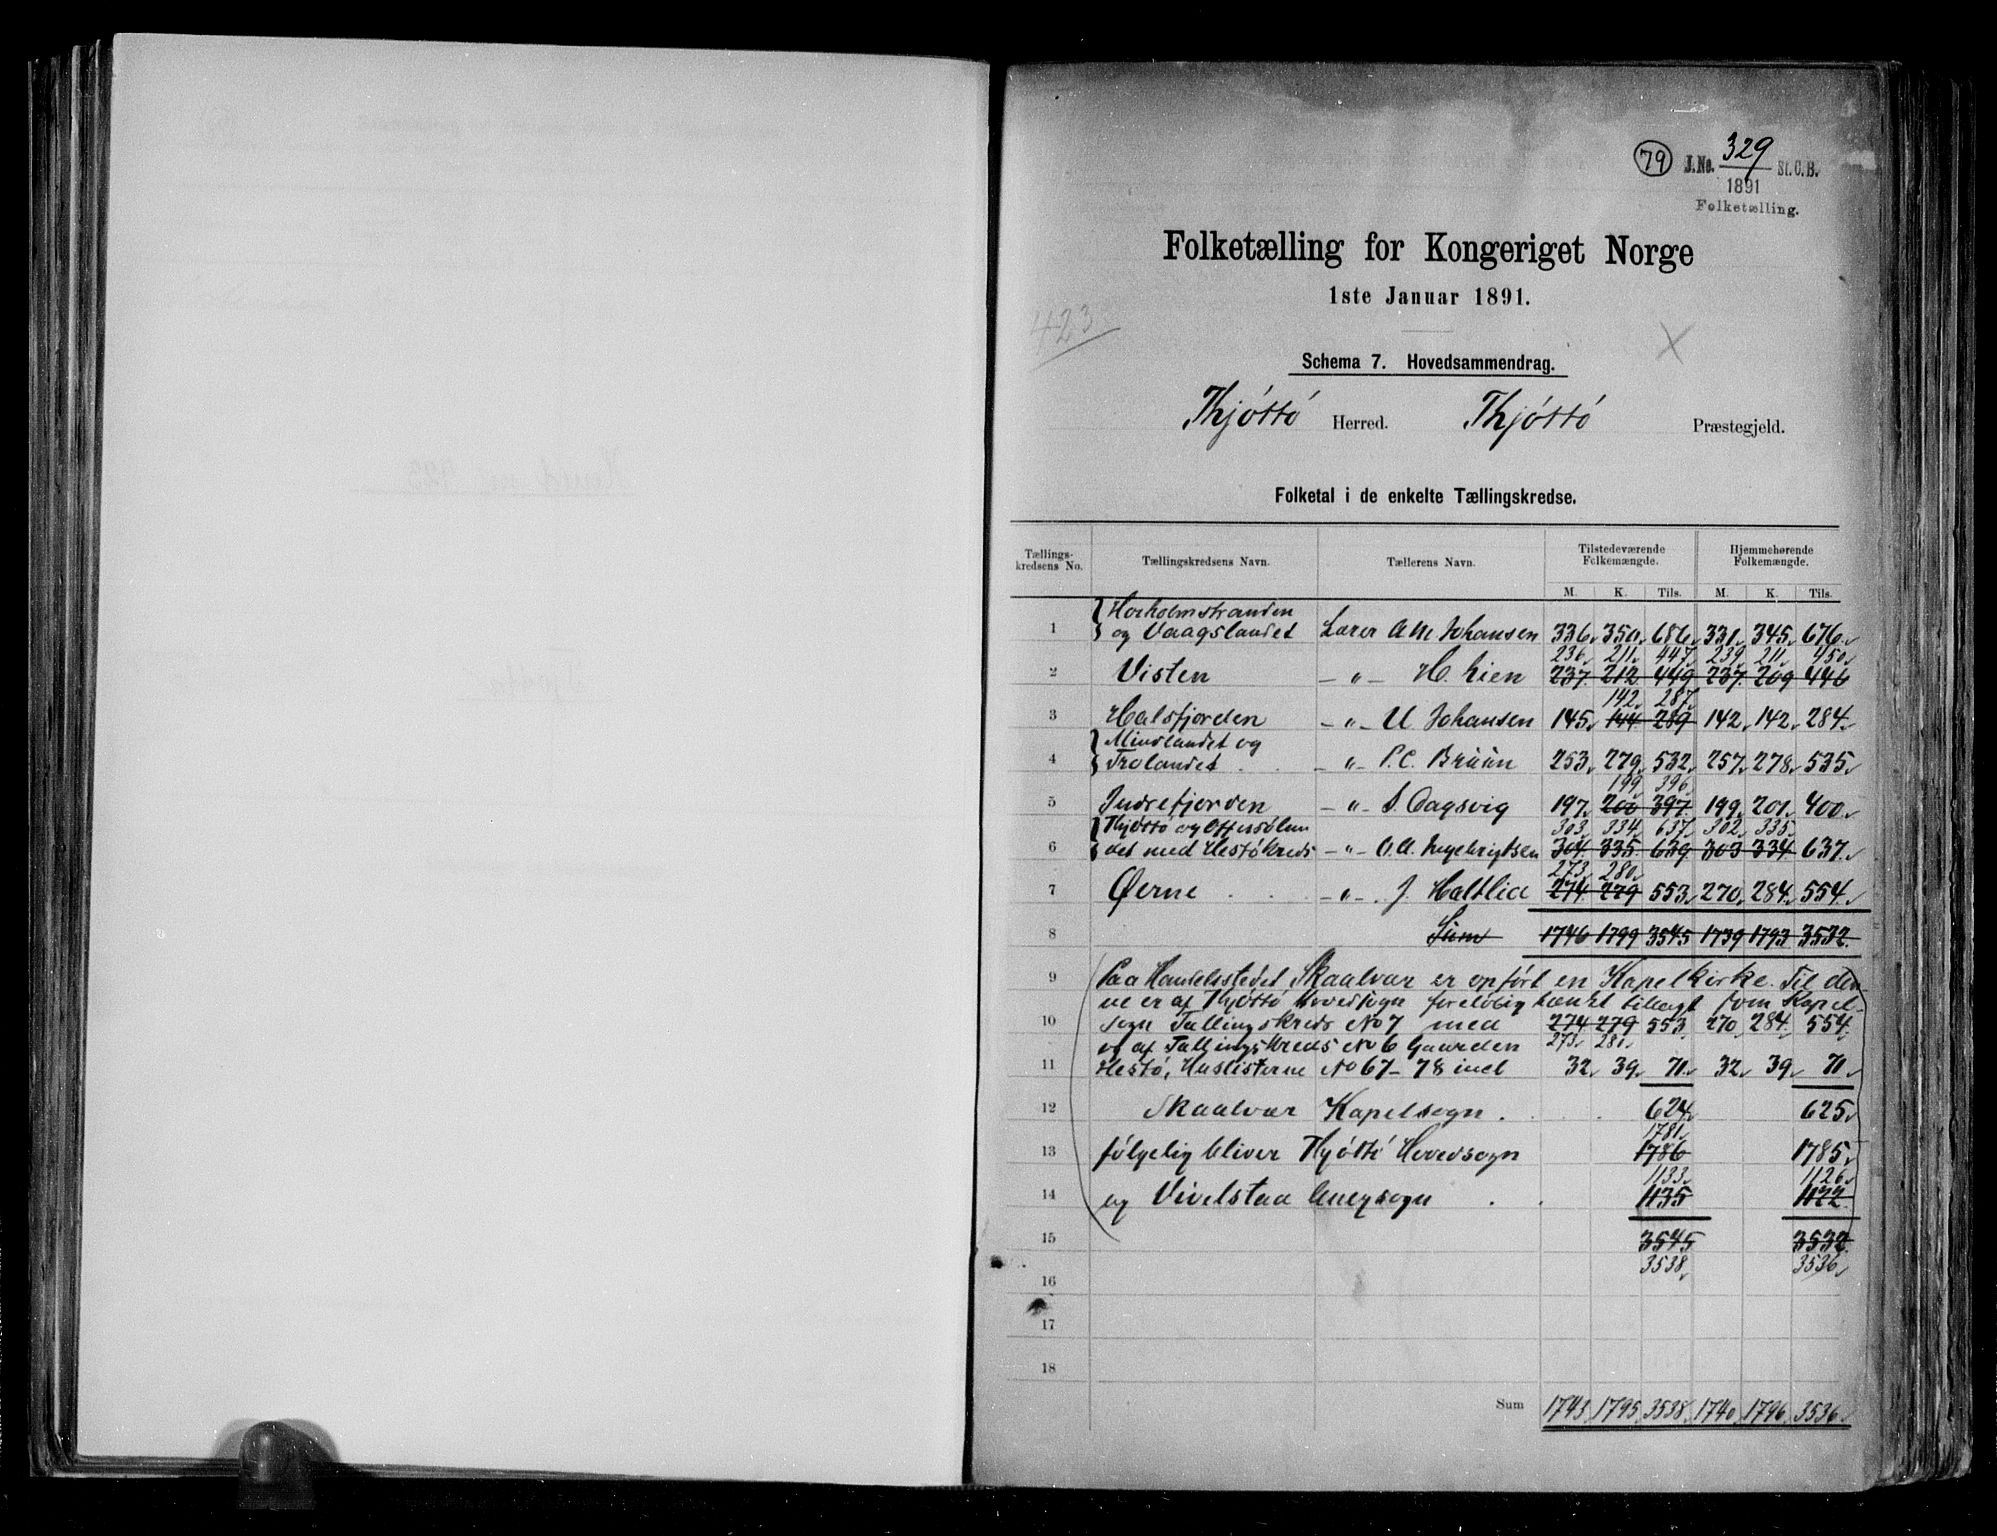 79 J.No. 329 St.C.B.
1891
Folketælling.
Folketælling for Kongeriget Norge
1ste Januar 1891.
423
Schema 7. Hovedsammendrag.
Thjøttø Herred. Thjøttø Præstegjeld.
Folketal i de enkelte Tællingskredse.
Tællings- Tællingskredsens Navn. Tællerens Navn. Tilstedeværende Hjemmehørende
kredsens No. Folkemængde. Folkemængde.
M. K. Tils. M. K. Tils.
Horholmstranden
1 og Vaagslandet Lærer A M Johansen 336 350 686 331 345 676
236 211 447 239 211 450
2 Visten — " — H. Lien 237 212 449 237 209 446
142 287
3 Halsfjorden — " — U Johansen 145 144 289 142 142 284
Mindlandet og
4 Trolandet — " — P.C. Brüün 253 279 532 257 278 535
199 396
5 Indrefjorden — " — S. Dagsvig 197 200 397 199 201 400
Thjøttø og Offersølan 303 334 637 302 335
6 det med Hestøkreds — " — O.A. Ingebrigtsen 304 335 639 303 334 637
273 280
7 Øerne — " — J. Haltlid 274 279 553 270 284 554
8 Sum 1746 1799 3545 1739 1793 3532
9 Paa Handelsstedet Skaalvær er opført en Kapelkirke. Til den-
ne er af Thjøttø Hovedsogn foreløbig tænkt tillagt som Kapel-
10 sogn Tællingskreds No 7 med 274 279 553 270 284 554
og af Tællingskreds No 6 Gaarden 273 280
11 Hestø, Huslisterne No 67-78 incl 32 39 71 32 39 71
12 Skaalvær Kapelsogn 624 625
1781
13 følgelig bliver Thjøttø Hovedsogn 1786 1785
1133 1126
14 og Vivelstad Annexsogn 1135 1122
15 3545 3532
3538 3536
16
17
18
Sum 1743 1795 3538 1740 1796 3536